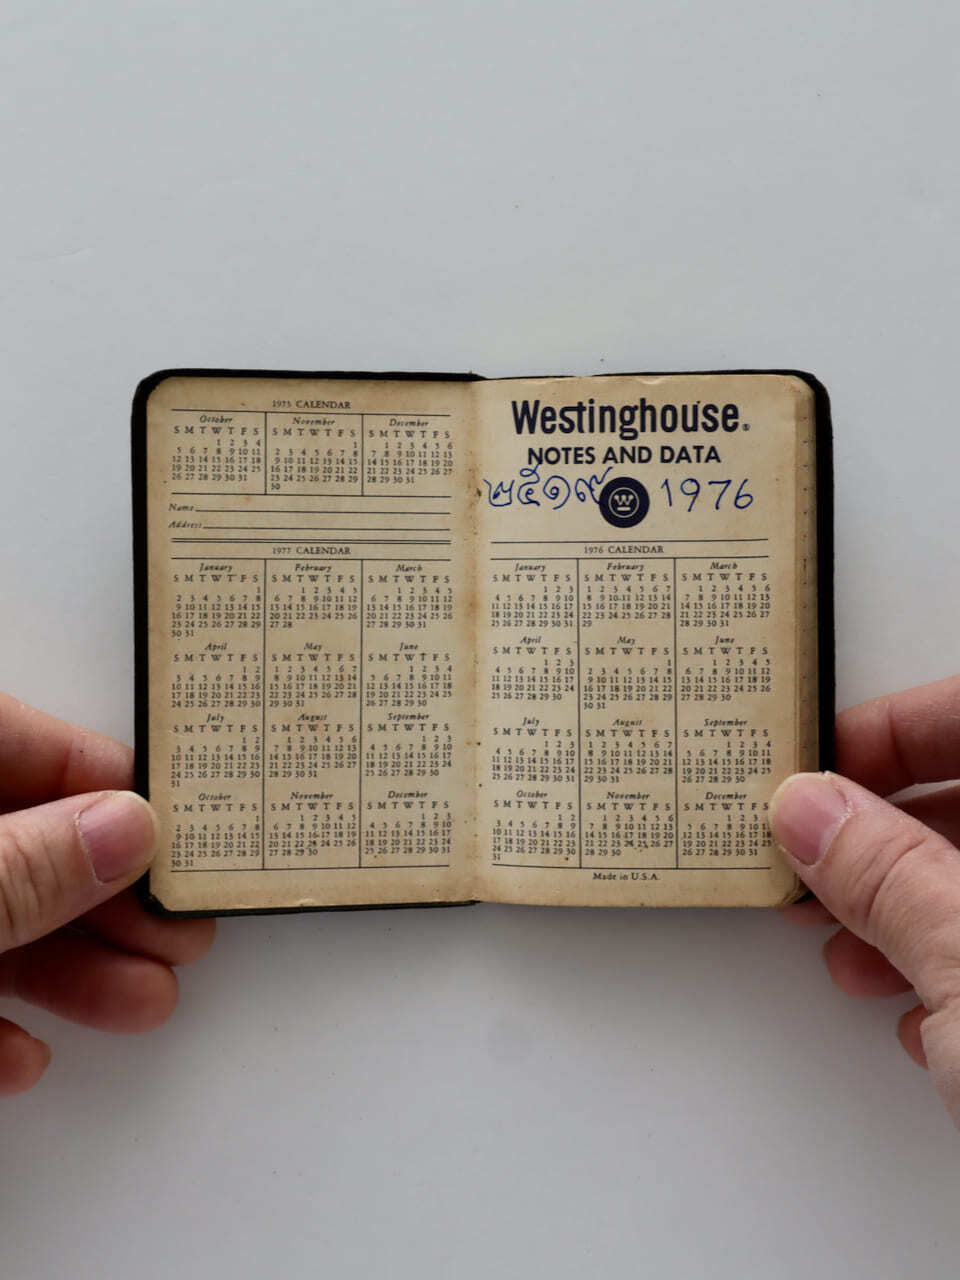 1975 CALENDAR
October November December
S M T W T F S S M T W T F S S M T W T F S
1 2 3 4 1 1 2 3 4 5 6
5 6 7 8 9 10 11 2 3 4 5 6 7 8 7 8 9 10 11 12 13
12 13 14 15 16 17 18 9 10 11 12 13 14 15 14 15 16 17 18 19 20
19 20 21 22 23 24 25 16 17 18 19 20 21 22 21 22 23 24 25 26 27
26 27 28 29 30 31 23 24 25 26 27 28 29 28 29 30 31
30
Name
Address
1977 CALENDAR
January February March
S M T W T F S S M T W T F S S M T W T F S
1 1 2 3 4 5 1 2 3 4 5
2 3 4 5 6 7 8 6 7 8 9 10 11 12 6 7 8 9 10 11 12
9 10 11 12 13 14 15 13 14 15 16 17 18 19 13 14 15 16 17 18 19
16 17 18 19 20 21 22 20 21 22 23 24 25 26 20 21 22 23 24 25 26
23 24 25 26 27 28 29 27 28 27 28 29 30 31
30 31
April May June
S M T W T F S S M T W T F S S M T W T F S
1 2 1 2 3 4 5 6 7 1 2 3 4
3 4 5 6 7 8 9 8 9 10 11 12 13 14 5 6 7 8 9 10 11
10 11 12 13 14 15 16 15 16 17 18 19 20 21 12 13 14 15 16 17 18
17 18 19 20 21 22 23 22 23 24 25 26 27 28 19 20 21 22 23 24 25
24 25 26 27 28 29 30 29 30 31 26 27 28 29 30
July August September
S M T W T F S S M T W T F S S M T W T F S
1 2 1 2 3 4 5 6 1 2 3
3 4 5 6 7 8 9 7 8 9 10 11 12 13 4 5 6 7 8 9 10
10 11 12 13 14 15 16 14 15 16 17 18 19 20 11 12 13 14 15 16 17
17 18 19 20 21 22 23 21 22 23 24 25 26 27 18 19 20 21 22 23 24
24 25 26 27 28 29 30 28 29 30 31 25 26 27 28 29 30
31
October November December
S M T W T F S S M T W T F S S M T W T F S
1 1 2 3 4 5 1 2 3
2 3 4 5 6 7 8 6 7 8 9 10 11 12 4 5 6 7 8 9 10
9 10 11 12 13 14 15 13 14 15 16 17 18 19 11 12 13 14 15 16 17
16 17 18 19 20 21 22 20 21 22 23 24 25 26 18 19 20 21 22 23 24
23 24 25 26 27 28 29 27 28 29 30 25 26 27 28 29 30 31
30 31
Westinghouse®
NOTES AND DATA
๒๕๑๙ W 1976
1976 CALENDAR
January February March
S M T W T F S S M T W T F S S M T W T F S
1 2 3 1 2 3 4 5 6 7 1 2 3 4 5 6
4 5 6 7 8 9 10 8 9 10 11 12 13 14 7 8 9 10 11 12 13
11 12 13 14 15 16 17 15 16 17 18 19 20 21 14 15 16 17 18 19 20
18 19 20 21 22 23 24 22 23 24 25 26 27 28 21 22 23 24 25 26 27
25 26 27 28 29 30 31 29 28 29 30 31
April May June
S M T W T F S S M T W T F S S M T W T F S
1 2 3 1 1 2 3 4 5
4 5 6 7 8 9 10 2 3 4 5 6 7 8 6 7 8 9 10 11 12
11 12 13 14 15 16 17 9 10 11 12 13 14 15 13 14 15 16 17 18 19
18 19 20 21 22 23 24 16 17 18 19 20 21 22 20 21 22 23 24 25 26
25 26 27 28 29 30 23 24 25 26 27 28 29 27 28 29 30
30 31
July August September
S M T W T F S S M T W T F S S M T W T F S
1 2 3 1 2 3 4 5 6 7 1 2 3 4
4 5 6 7 8 9 10 8 9 10 11 12 13 14 5 6 7 8 9 10 11
11 12 13 14 15 16 17 15 16 17 18 19 20 21 12 13 14 15 16 17 18
18 19 20 21 22 23 24 22 23 24 25 26 27 28 19 20 21 22 23 24 25
25 26 27 28 29 30 31 29 30 31 26 27 28 29 30
October November December
S M T W T F S S M T W T F S S M T W T F S
1 2 1 2 3 4 5 6 1 2 3
3 4 5 6 7 8 9 7 8 9 10 11 12 13 5 6 7 8 9 10
10 11 12 13 14 15 16 14 15 16 17 18 19 20 12 13 14 15 16 17 18
17 18 19 20 21 22 23 21 22 23 24 25 26 27 19 20 21 22 23 24 25
24 25 26 27 28 29 30 28 29 30 26 27 28 29 30 31
31
Made in U.S.A.